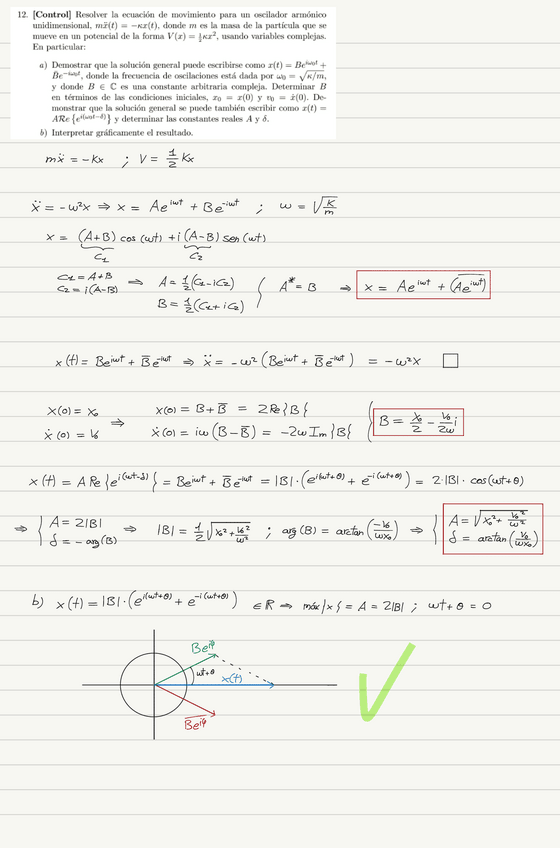 12. [Control] Resolver la ecuación de movimiento para un oscilador armónico
unidimensional, mẍ(t) = −κx(t), donde m es la masa de la partícula que se
mueve en un potencial de la forma V(x) = ½κx², usando variables complejas.
En particular:
a) Demostrar que la solución general puede escribirse como x(t) = Be^{iω₀t} +
B̄e^{−iω₀t}, donde la frecuencia de oscilaciones está dada por ω₀ = √(κ/m),
y donde B ∈ ℂ es una constante arbitraria compleja. Determinar B
en términos de las condiciones iniciales, x₀ = x(0) y v₀ = ẋ(0). De-
monstrar que la solución general se puede también escribir como x(t) =
ARe{e^{i(ω₀t−δ)}} y determinar las constantes reales A y δ.
b) Interpretar gráficamente el resultado.
mẍ = −Kx ; V = 1/2 Kx
ẍ = −ω²x ⇒ x = Ae^{iωt} + Be^{−iωt} ; ω = √(K/m)
x = (A+B) cos(ωt) + i(A−B) sen(ωt)
C₁ C₂
C₁ = A+B
C₂ = i(A−B)
⇒ A = 1/2(C₁−iC₂)
B = 1/2(C₁+iC₂)
A* = B ⇒ x = Ae^{iωt} + (Ae^{iωt})‾
x(t) = Be^{iωt} + B̄e^{−iωt} ⇒ ẍ = −ω²(Be^{iωt} + B̄e^{−iωt}) = −ω²x □
x(0) = x₀ ⇒ x(0) = B + B̄ = 2Re{B}
ẋ(0) = V₀ ẋ(0) = iω(B−B̄) = −2ω Im{B}
B = x₀/2 − V₀/2ω i
x(t) = A Re{e^{i(ωt−δ)}} = Be^{iωt} + B̄e^{−iωt} = |B|·(e^{i(ωt+θ)} + e^{−i(ωt+θ)}) = 2·|B|·cos(ωt+θ)
⇒ { A = 2|B| ⇒ |B| = 1/2 √(x₀² + V₀²/ω²) ; arg(B) = arctan(−V₀/ωx₀) ⇒ { A = √(x₀² + V₀²/ω²)
δ = −arg(B) δ = arctan(V₀/ωx₀)
b) x(t) = |B|·(e^{i(ωt+θ)} + e^{−i(ωt+θ)}) ∈ ℝ ⇒ máx{x} = A = 2|B| ; ωt+θ = 0
Be^{iφ}
ωt+θ
x(t)
(Be^{iφ})‾